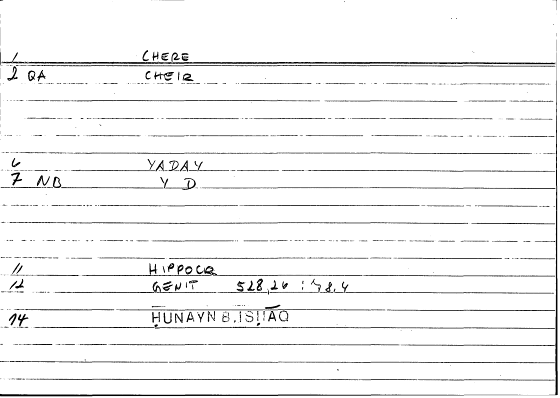 1 CHERE
2 QA CHEIR
6 YADAY
7 NB YD
11 HIPPOCR
12 GENIT 528,26 : 8.4
14 ḤUNAYN B. ISḤĀQ